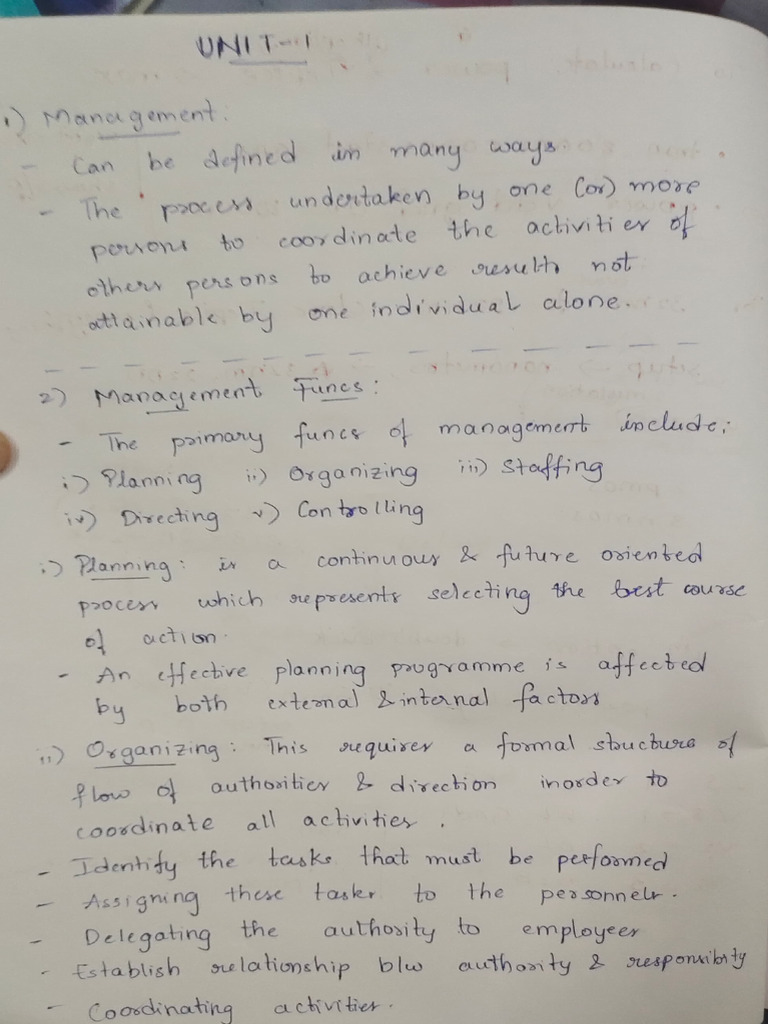 UNIT-1
1) Management:
- Can be defined in many ways.
- The process undertaken by one (or) more
persons to coordinate the activities of
others persons to achieve results not
attainable by one individual alone.
2) Management Funcs:
- The primary funcs of management include:
i) Planning ii) Organizing iii) Staffing
iv) Directing v) Controlling
i) Planning: is a continuous & future oriented
process which represents selecting the best course
of action.
- An effective planning programme is affected
by both external & internal factors
ii) Organizing: This requires a formal structure of
flow of authorities & direction inorder to
coordinate all activities.
- Identify the tasks that must be performed
- Assigning these tasks to the personnels.
- Delegating the authority to employees
- Establish relationship b/w authority & responsibity
- Coordinating activities.